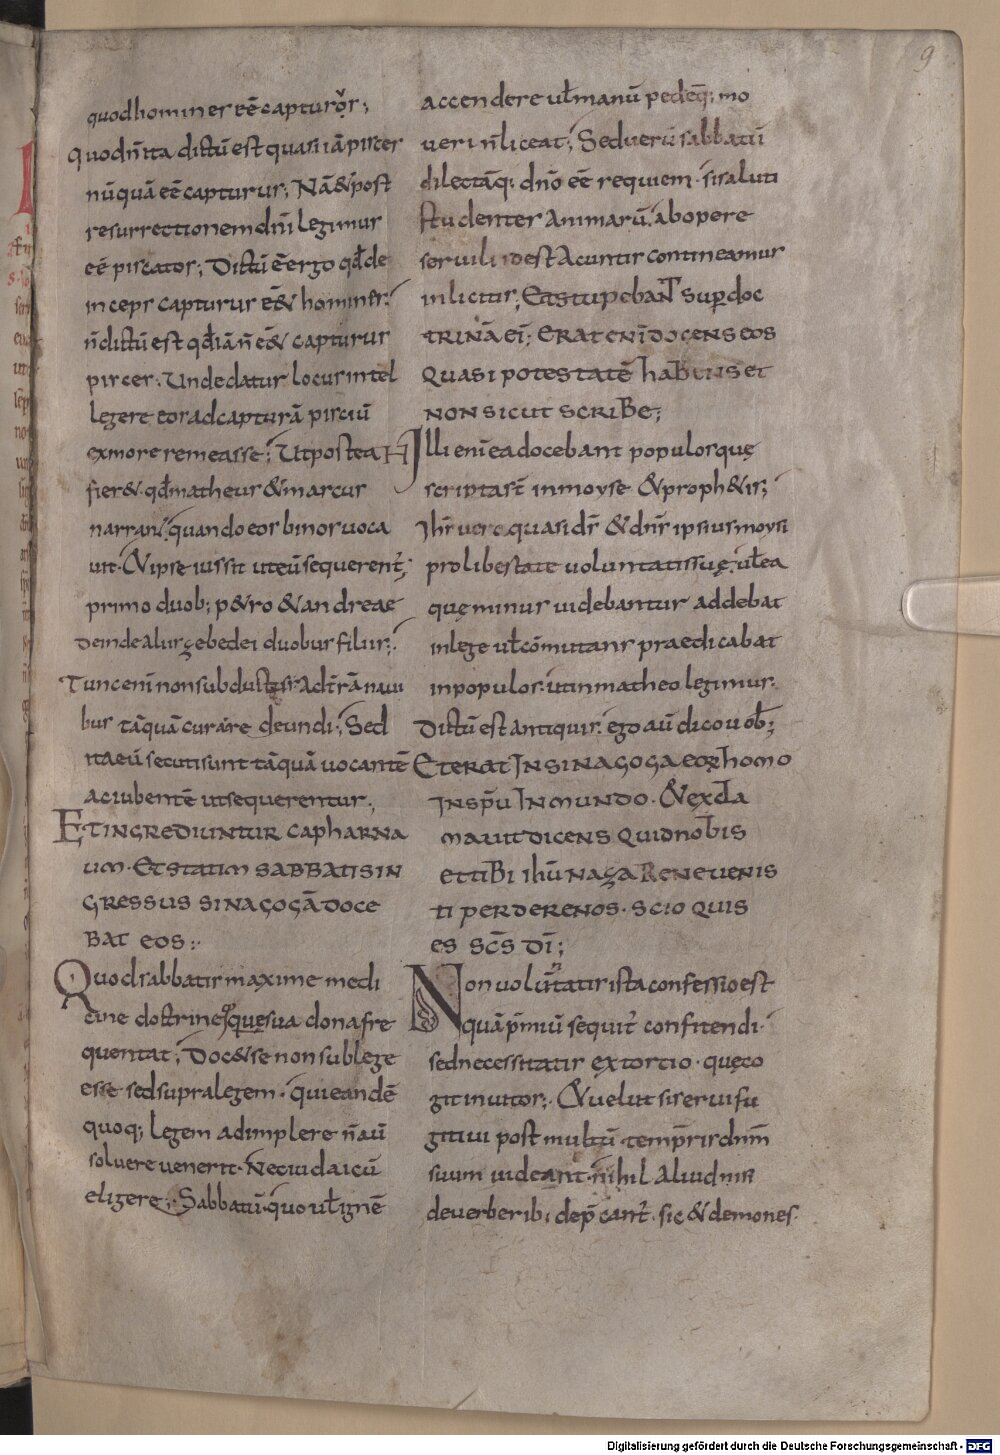 9
quod homines eē capturos;
Quod n̄ ita dictū est quasi iā pisces
nūquā eē capturus; Nā & post
resurrectionem dn̄i legimus
eē piscator; Dictū ē ergo qđ de
inceps capturus eēt homines;
n̄ dictū est qđ iā n̄ eēt capturus
pisces; Unde datur locus intel
legere eos ad capturā pisciū
ex more remeasse; Ut postea
fier& qđ matheus & marcus
narrant quando eos binos uoca
uit. & ipse iussit ut eū sequerent̄;
primo duob; p&ro & andreae
Deinde alus zebedei duobus filiis;
Tunc enī non subductis ad t̄rā naui
bus tāquā cura re deundi; Sed
ita eū secuti sunt tāquā uocantē
ac iubentē ut sequerentur;
ET INGREDIUNTUR CAPHARNA
UM. ET STATIM SABBATIS IN
GRESSUS SINAGOGĀ DOCE
BAT EOS;
Quod sabbatis maxime medi
cine doctrineque suę dona fre
quentat; Doc& se non sub lege
esse sed supra legem. qui eandē
quoq; legem adimplere n̄ aū
soluere uenerit. Nec iudaicū
eligere; Sabbatū quo uł ignē
accendere uł manū pedeq; mo
ueri n̄ liceat; Sed uerū sabbatū
dilectāq; dn̄o eē requiem. si saluti
studentes animarū. ab opere
seruili id est a cunctis contineamur
inlicitis; ET STUPEBANT SUP DOC
TRINĀ EI'; ERAT ENĪ DOCENS EOS
QUASI POTESTATĒ HABENS ET
NON SICUT SCRIBE;
Illi enī ea docebant populos quę
scripta st̄ in moyse & proph&is;
Ihs̄ uero quasi ds̄ & dn̄s ipsius moysi
pro libestate uoluntatis suę. uł ea
quę minus uidebantur addebat
in lege uł cōmutans praedicabat
in populos. ut in matheo legimus.
Dictū est antiquis. ego aū dico uob̄;
ET ERAT IN SINAGOGA EORꝜ HOMO
IN SPŪ INMUNDO. & EXCLA
MAUIT DICENS QUID NOBIS
ET TIBI IHŪ NAZARENE UENIS
TI PERDERE NOS. SCIO QUIS
ES SC̄S DĪ;
Non uolūntatis ista confessio est
quā p̄miū sequit̄ confitendi.
sed necessitatis extortio. quę co
git inuitos; & uelut si serui fu
gitiui post multū temp̄ris dn̄m
suum uideant. nihil aliud nisi
de uerberib; dep̄cant̄. sic & demones.
Digitalisierung gefördert durch die Deutsche Forschungsgemeinschaft - DFG